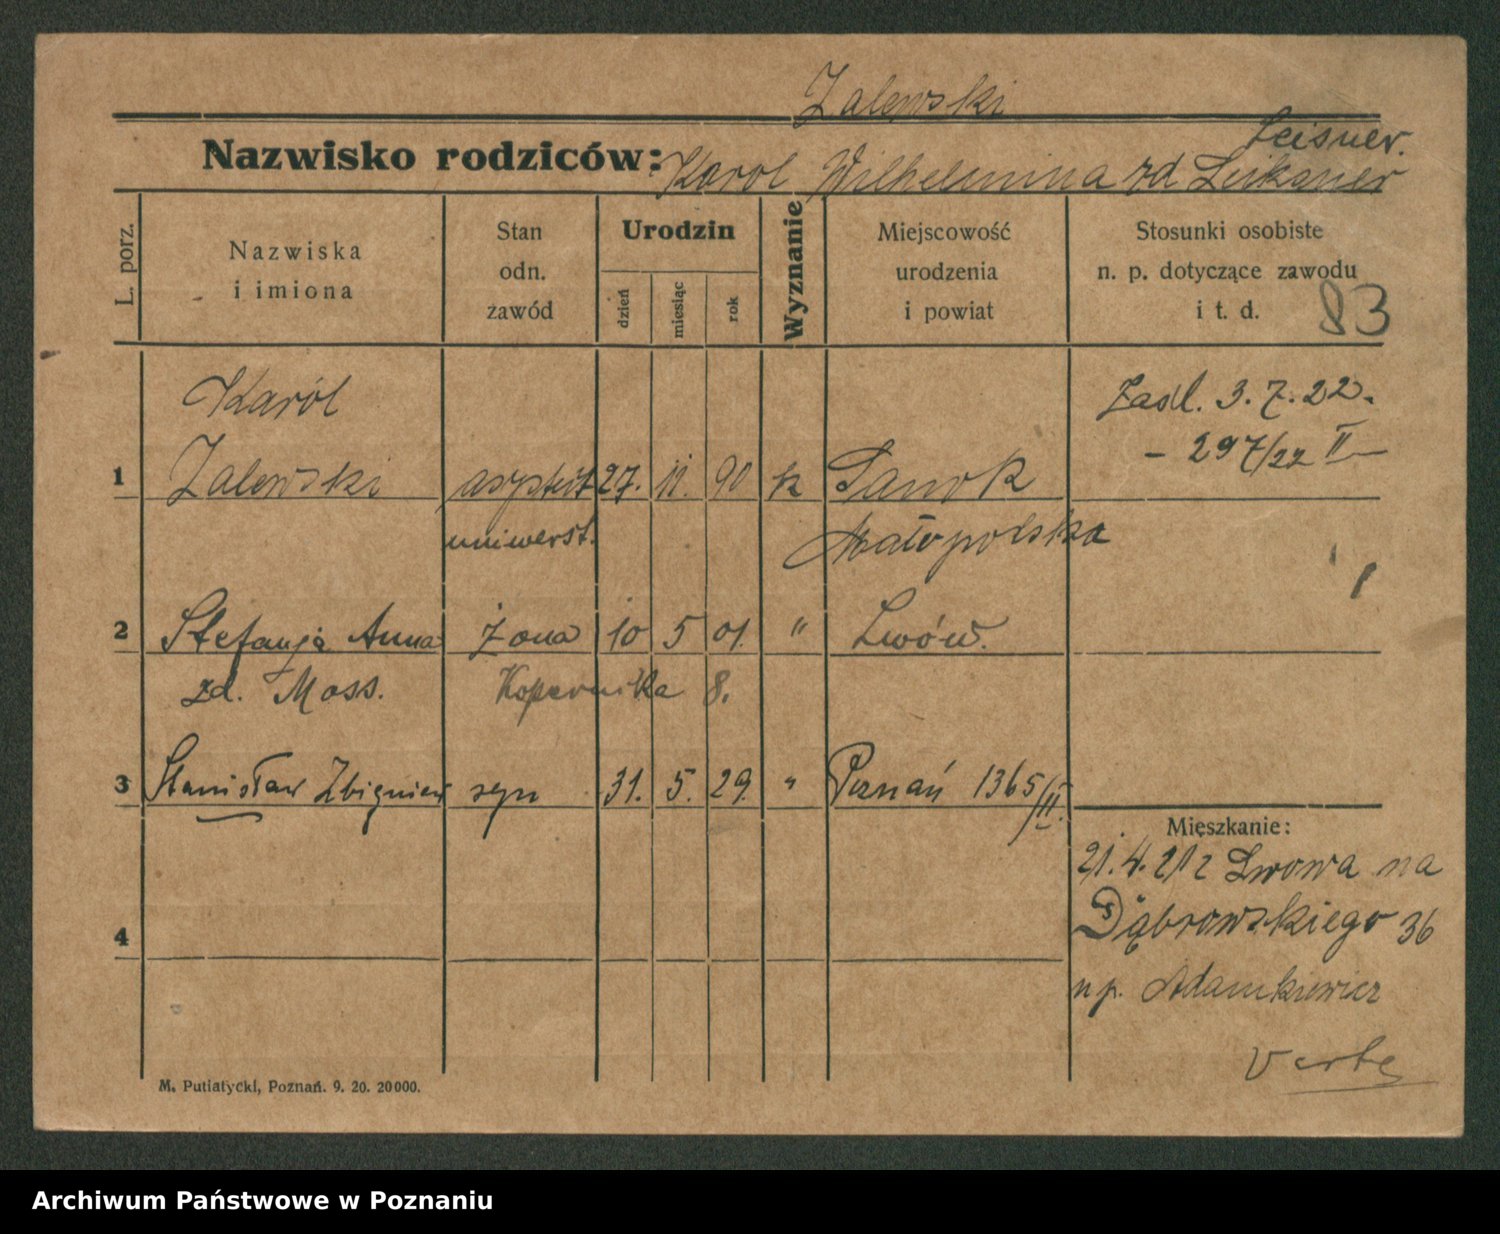 Zalewski
Leisner.
Nazwisko rodziców: Karol Wilhelmina zd Leikaner
L. porz.
Nazwiska
i imiona
Stan
odn.
zawód
Urodzin
dzień
miesiąc
rok
Wyznanie
Miejscowość
urodzenia
i powiat
Stosunki osobiste
n. p. dotyczące zawodu
i t. d.
83
Karól
Zaśl. 3. 7. 22.
- 297/22 II
1 Zalewski asystent 27. 11. 90 k Sanok
uniwerst. Małopolska
2 Stefanja Anna żona 10 5 01. " Lwów.
zd. Moss. Kopernika 8.
3 Stanisław Zbigniew syn 31. 5. 29. " Poznań 1365/II.
Mieszkanie:
21. 4. 21 z Lwowa na
Dąbrowskiego 36
4
n p. Adamkiewicz
Verte
M. Putiatycki, Poznań. 9. 20. 20000.
Archiwum Państwowe w Poznaniu